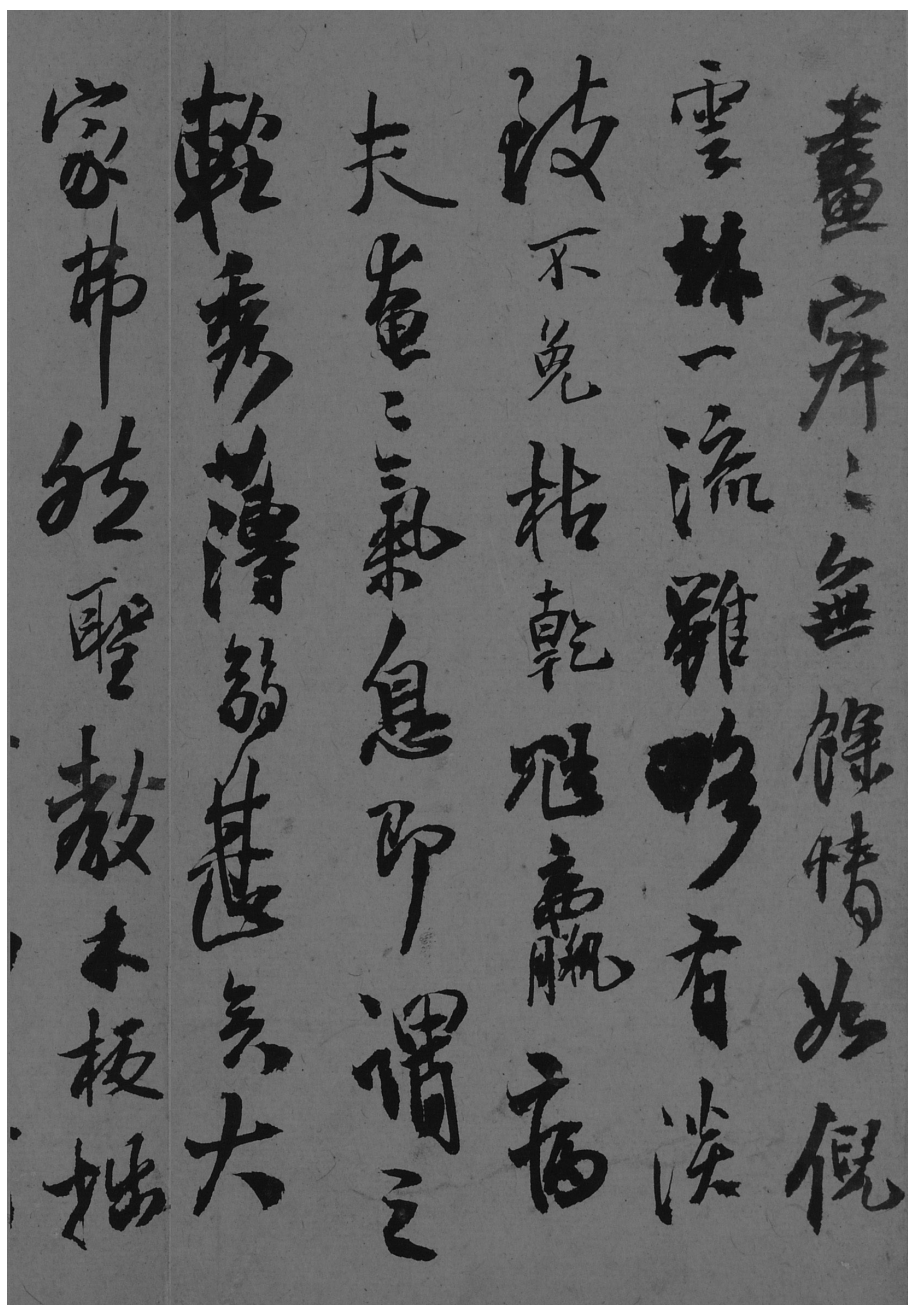 畫寂〻無餘情如倪
雲林一流雖略有淡
致不免枯乾尪羸病
夫奄〻氣息即謂之
輕秀薄弱甚矣大
家弗然聖教木板拙